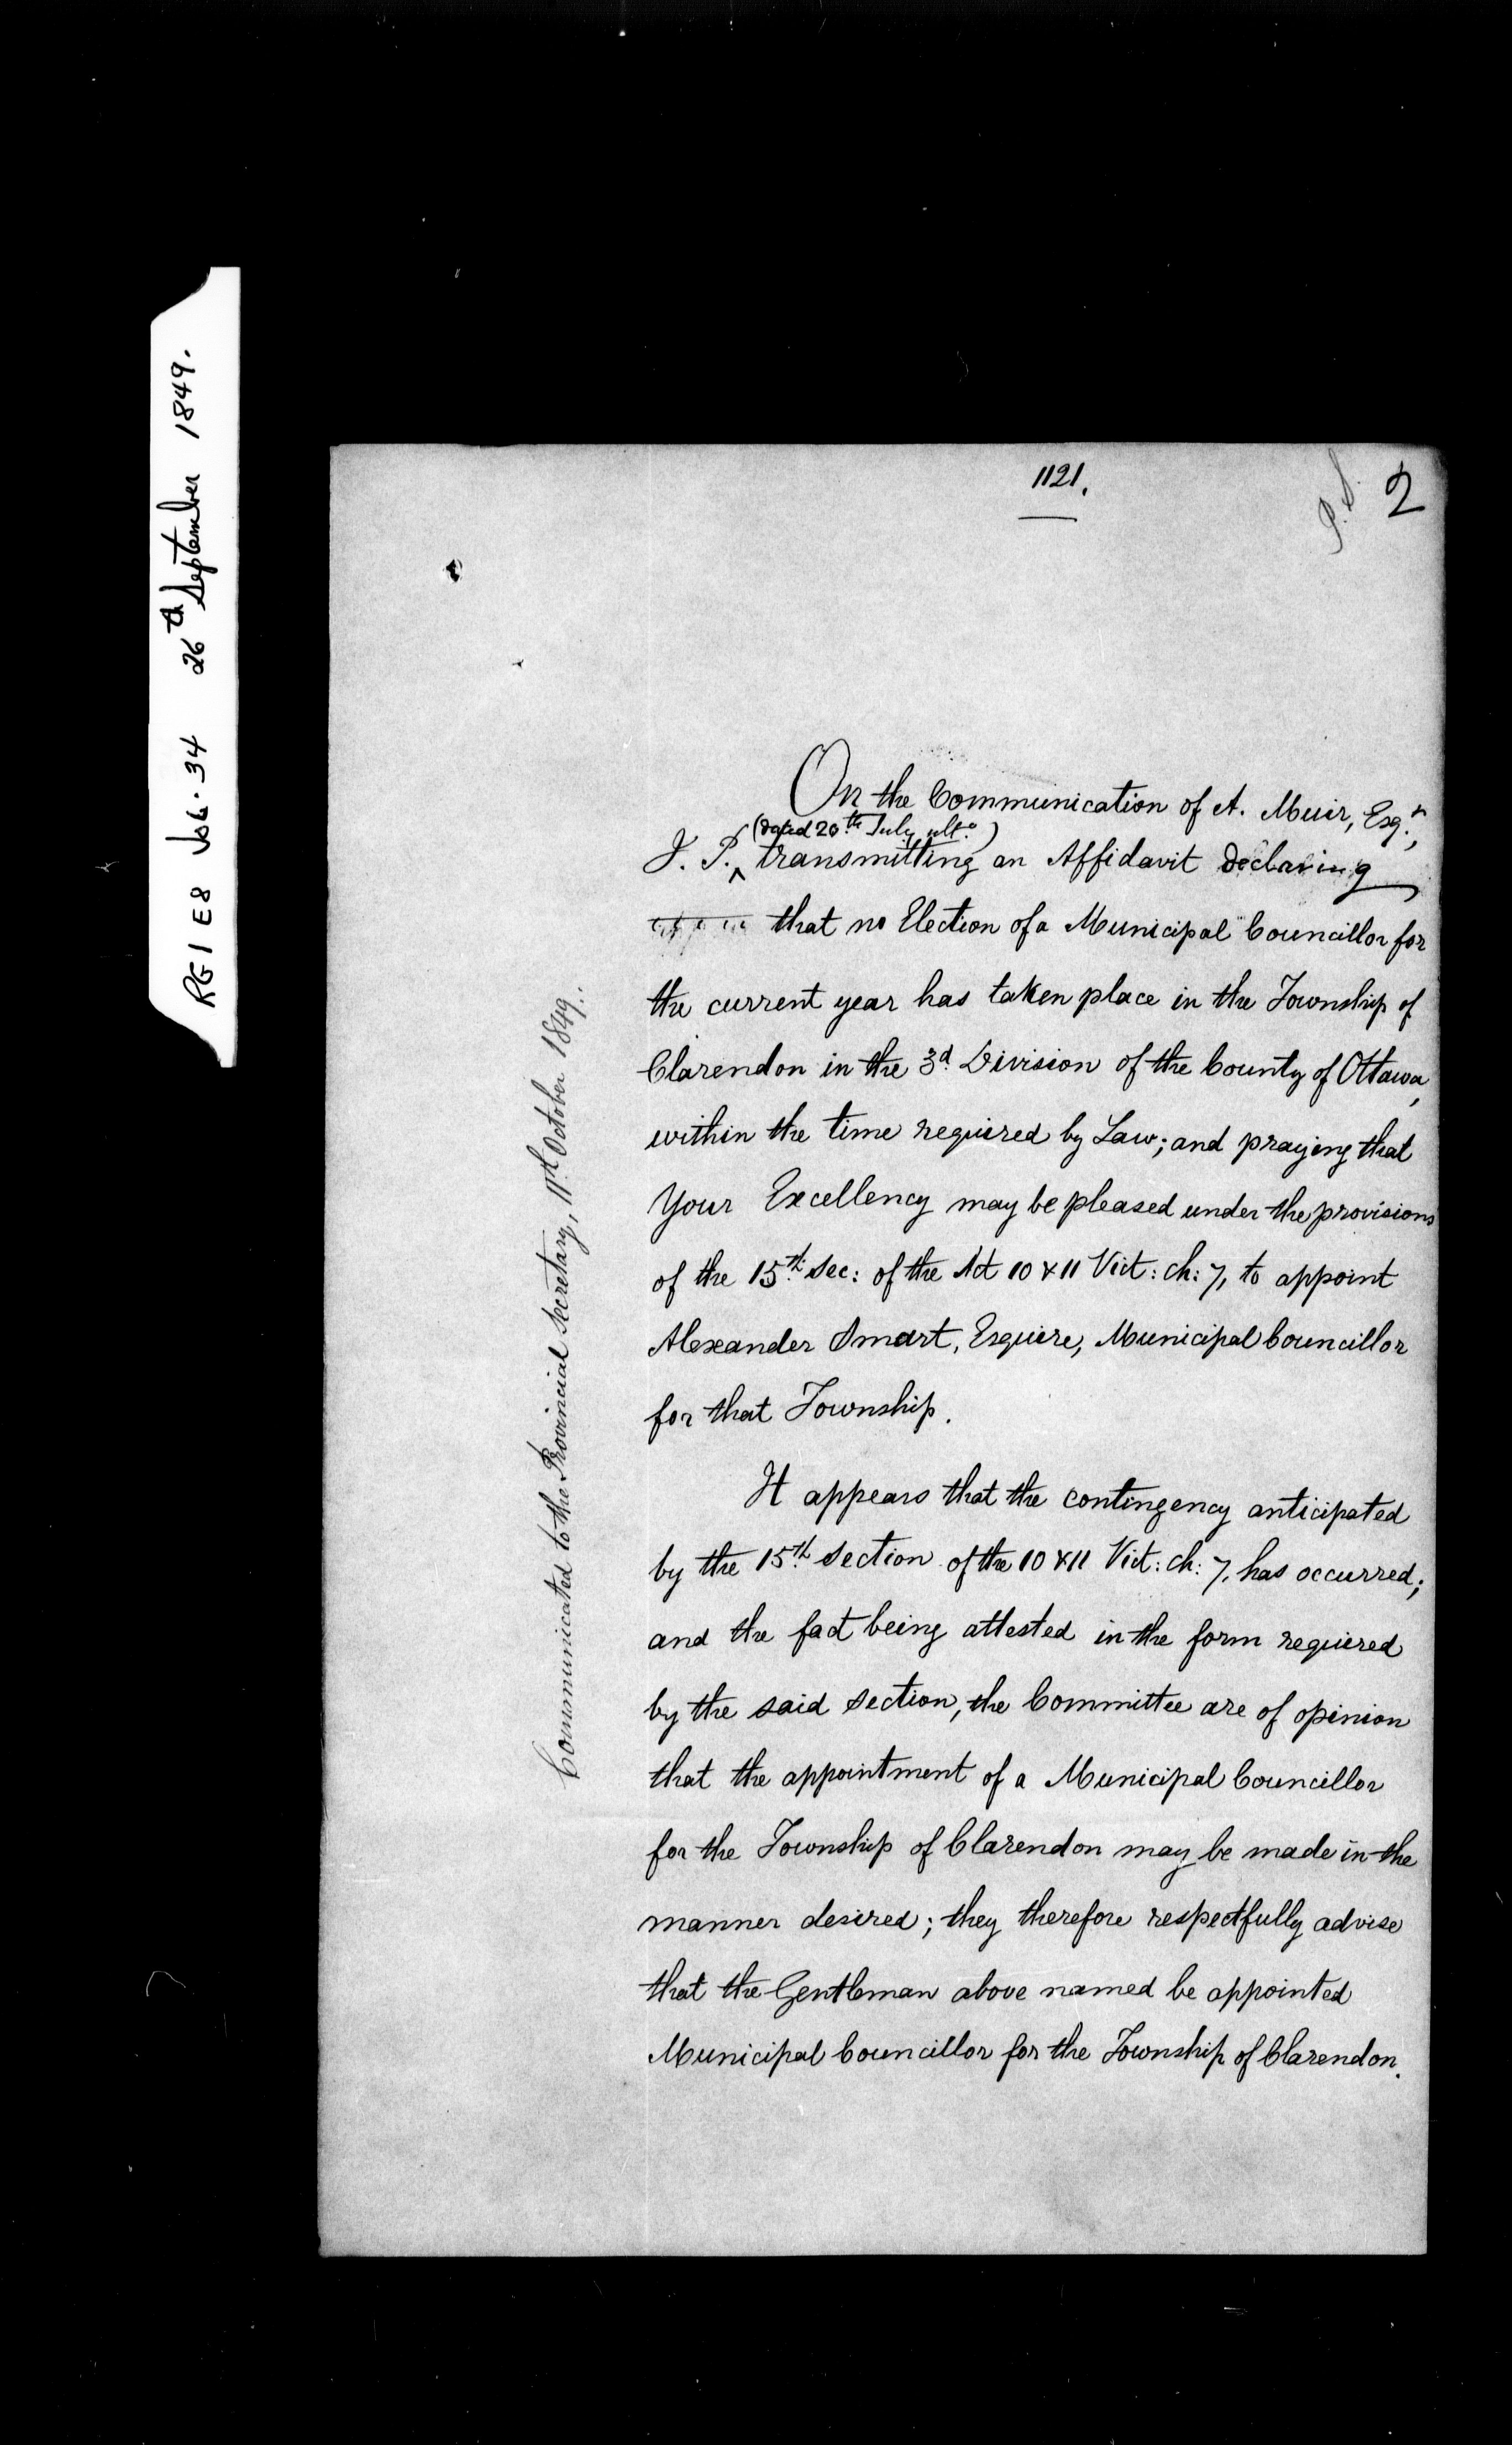 RG 1 E8 Vol. 34 26th September 1849.
1121.
P.S. 2
On the Communication of A. Muir, Esqr.,
(dated 20th July ulto.)
J. P. ^ transmitting an Affidavit declaring
that no Election of a Municipal Councillor for
the current year has taken place in the Township of
Clarendon in the 3d. Division of the County of Ottawa,
within the time required by Law; and praying that
Your Excellency may be pleased under the provisions
of the 15th. Sec: of the Act 10 & 11 Vict: ch: 7, to appoint
Alexander Smart, Esquire, Municipal Councillor
for that Township.
It appears that the contingency anticipated
by the 15th. Section of the 10 & 11 Vict: ch: 7, has occurred;
and the fact being attested in the form required
by the said Section, the Committee are of opinion
that the appointment of a Municipal Councillor
for the Township of Clarendon may be made in the
manner desired; they therefore respectfully advise
that the Gentleman above named be appointed
Municipal Councillor for the Township of Clarendon.
Communicated to the Provincial Secretary, 11th October 1849.